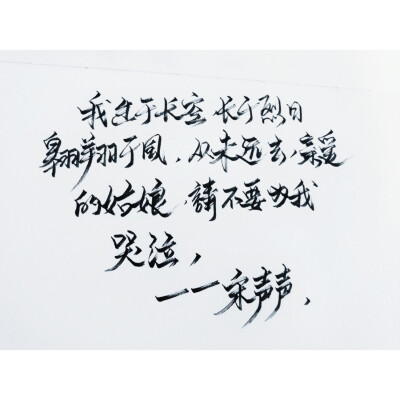 我生于长空长于烈日
翱翔于风,从未远去,亲爱
的姑娘,請不要为我
哭泣,
——宋声声、